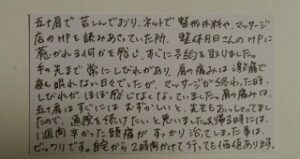 五十肩で苦しんでおり、ネットで整形外科や、マッサージ
店のHPを読みあさっていた所、整体月日さんのHPに
惹かれる何かを感じ、すぐに予約を取りました。
手の先まで常にしびれがあり、肩の痛みは激痛で
夜も眠れない日々でしたが、マッサージが終わった時、
しびれがほぼ感じなくなっていました。肩の痛みは、
五十肩はすぐにはむずかしいと、先生もおっしゃってました
ので、通院を続けたいと思いました。又、帰る時には、
1週間辛かった頭痛がすっかり治ってしまった事は、
ビックリです。自宅から2時間かけて行っても価値あります。